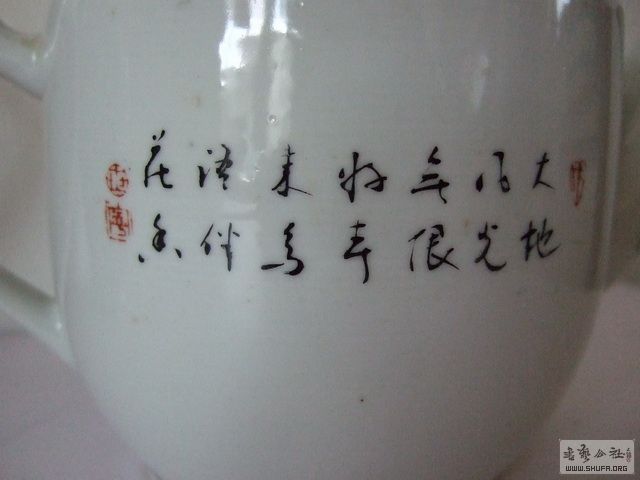 大地
风光
無限
好春
来鸟
语伴
花香
書藝公社
WWW.SHUFA.ORG